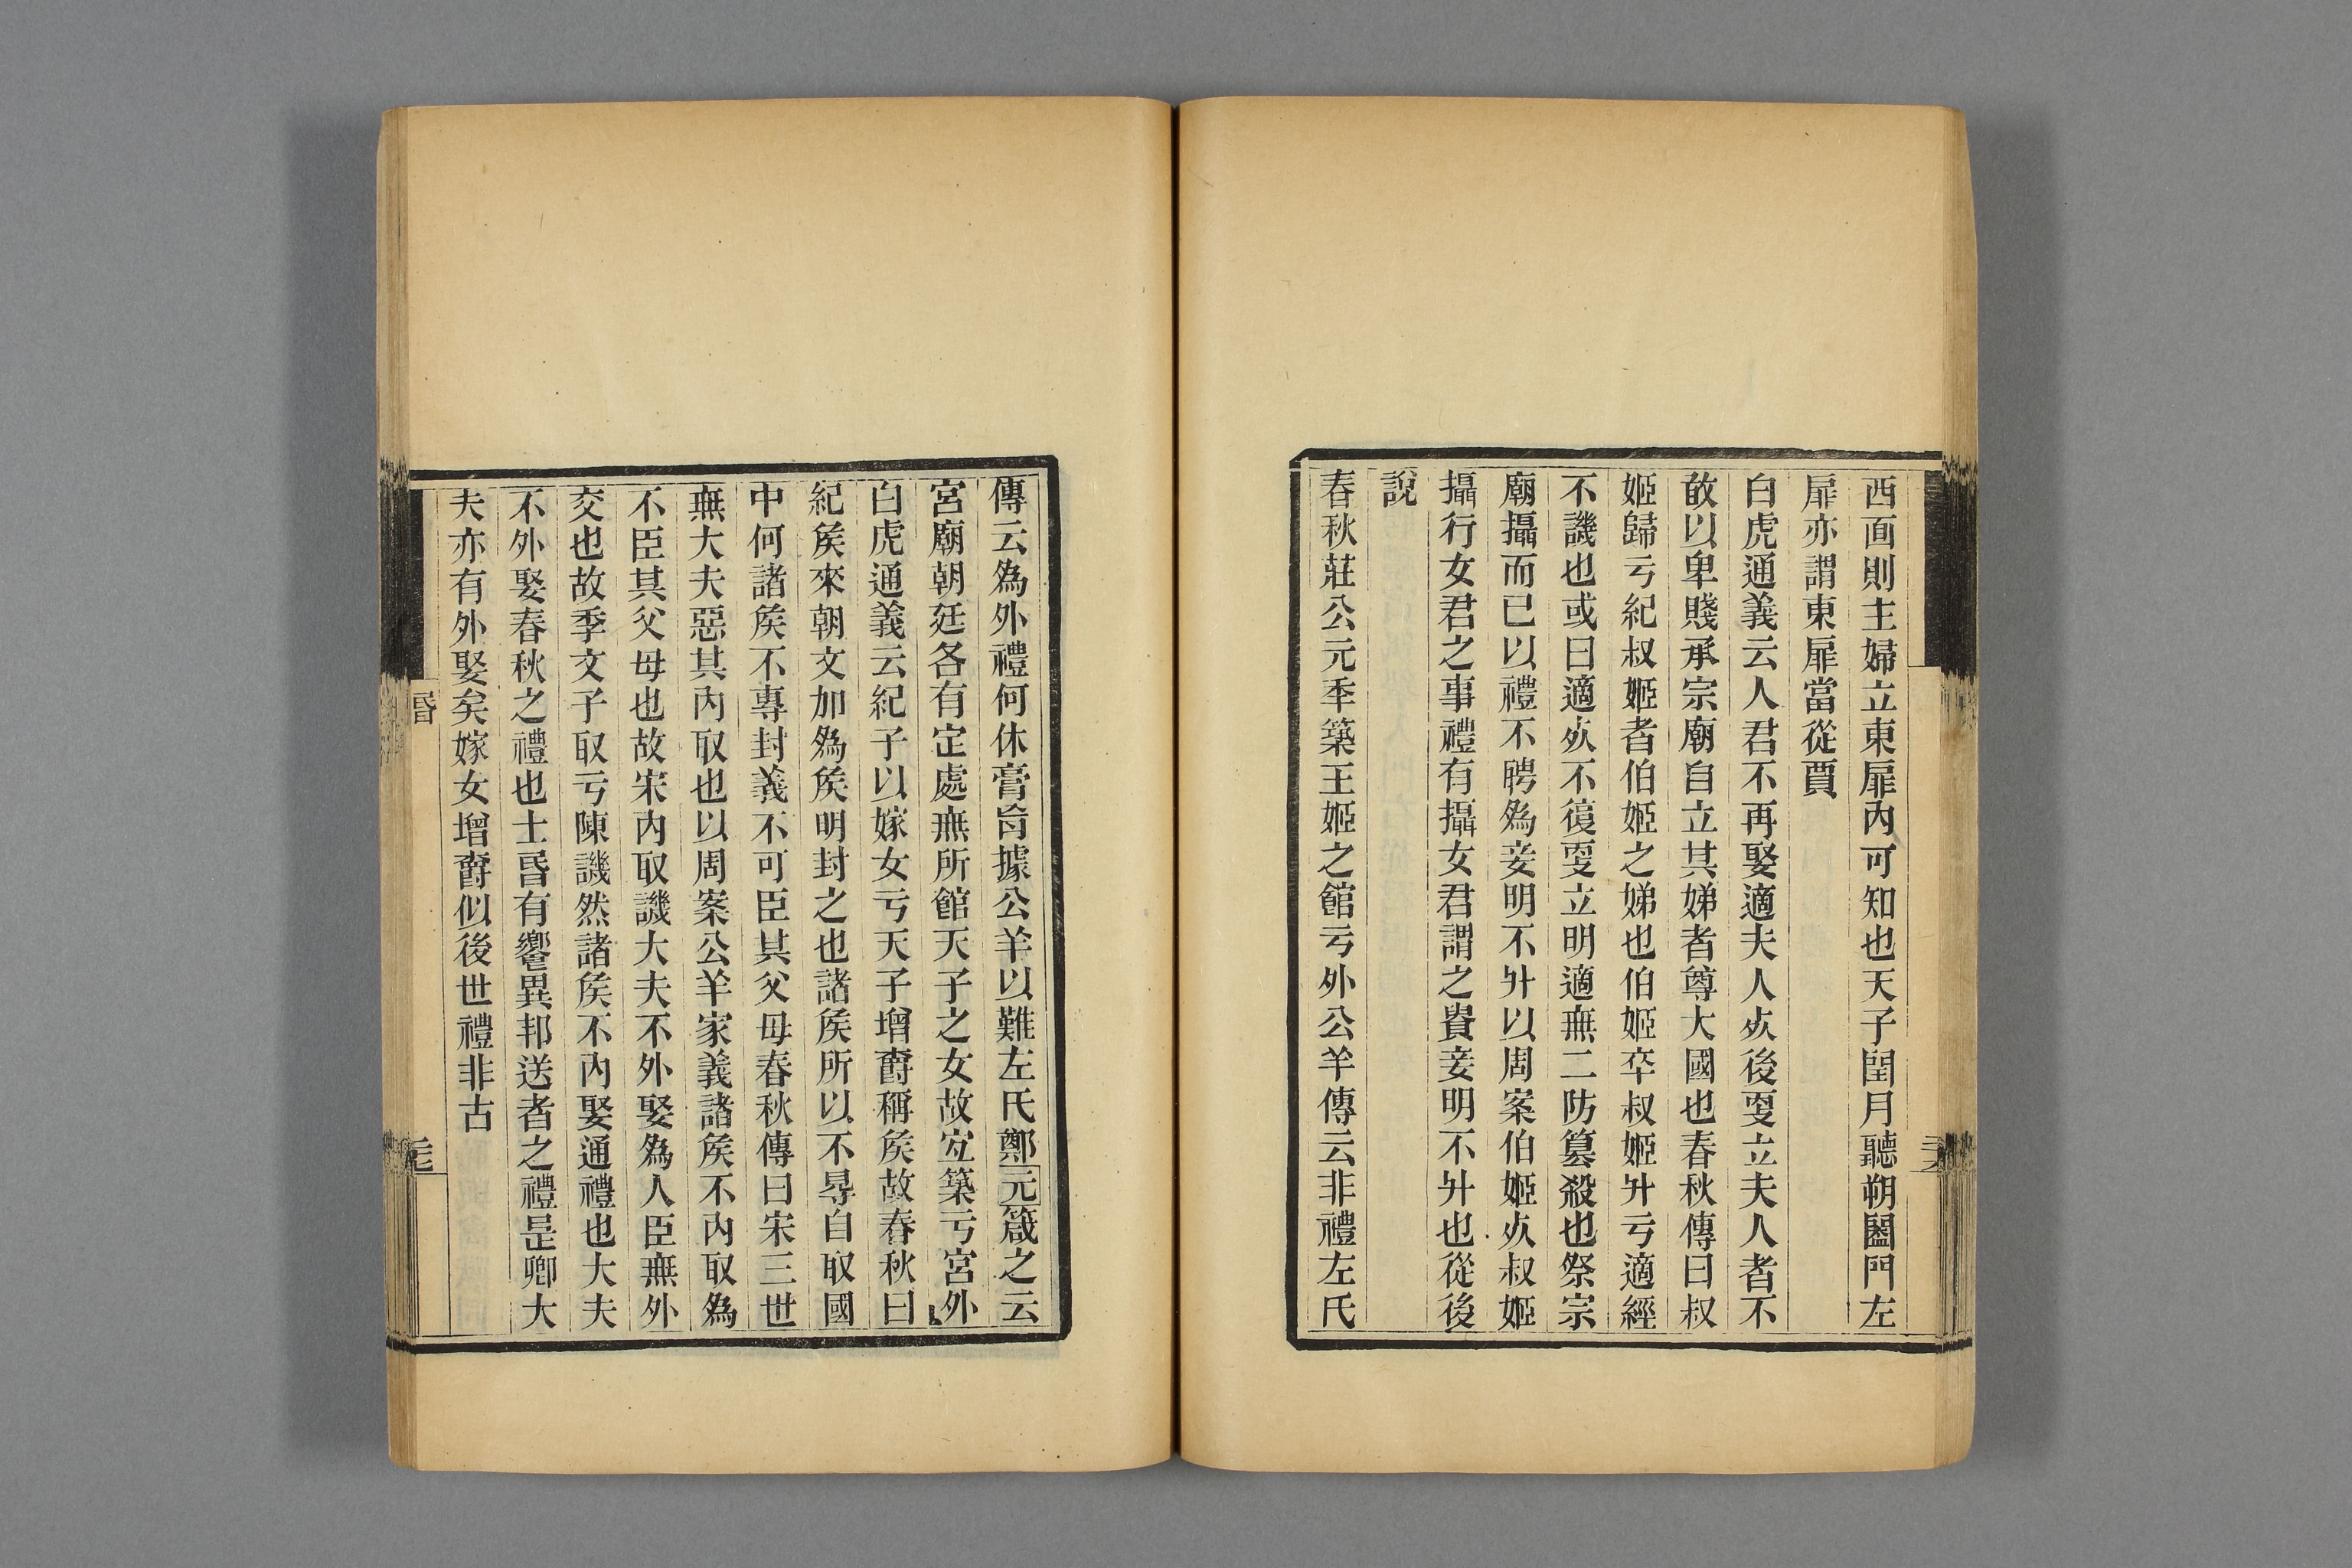 西面則主婦立東扉內可知也天子閏月聽朔闔門左
扉亦謂東扉當從賈
白虎通義云人君不再娶適夫人𣦸後㪅立夫人者不
敢以卑賤承宗廟自立其娣者尊大國也春秋傳曰叔
姬歸亏紀叔姬者伯姬之娣也伯姬卒叔姬升亏適經
不譏也或曰適𣦸不復㪅立明適無二防篡殺也祭宗
廟攝而已以禮不聘爲妾明不升以周案伯姬𣦸叔姬
攝行女君之事禮有攝女君謂之貴妾明不升也從後
說
春秋莊公元秊築王姬之館亏外公羊傳云非禮左氏
傳云爲外禮何休膏肓據公羊以難左氏鄭元箴之云
宮廟朝廷各有定處無所館天子之女故宜築亏宮外
白虎通義云紀子以嫁女亏天子增爵稱矦故春秋曰
紀矦來朝文加爲矦明封之也諸矦所以不㝵自取國
中何諸矦不專封義不可臣其父母春秋傳曰宋三世
無大夫惡其內取也以周案公羊家義諸矦不內取爲
不臣其父母也故宋內取譏大夫不外娶爲人臣無外
交也故季文子取亏陳譏然諸矦不內娶通禮也大夫
不外娶春秋之禮也士昏有饗異邦送者之禮是卿大
夫亦有外娶矣嫁女增爵似後世禮非古
昏